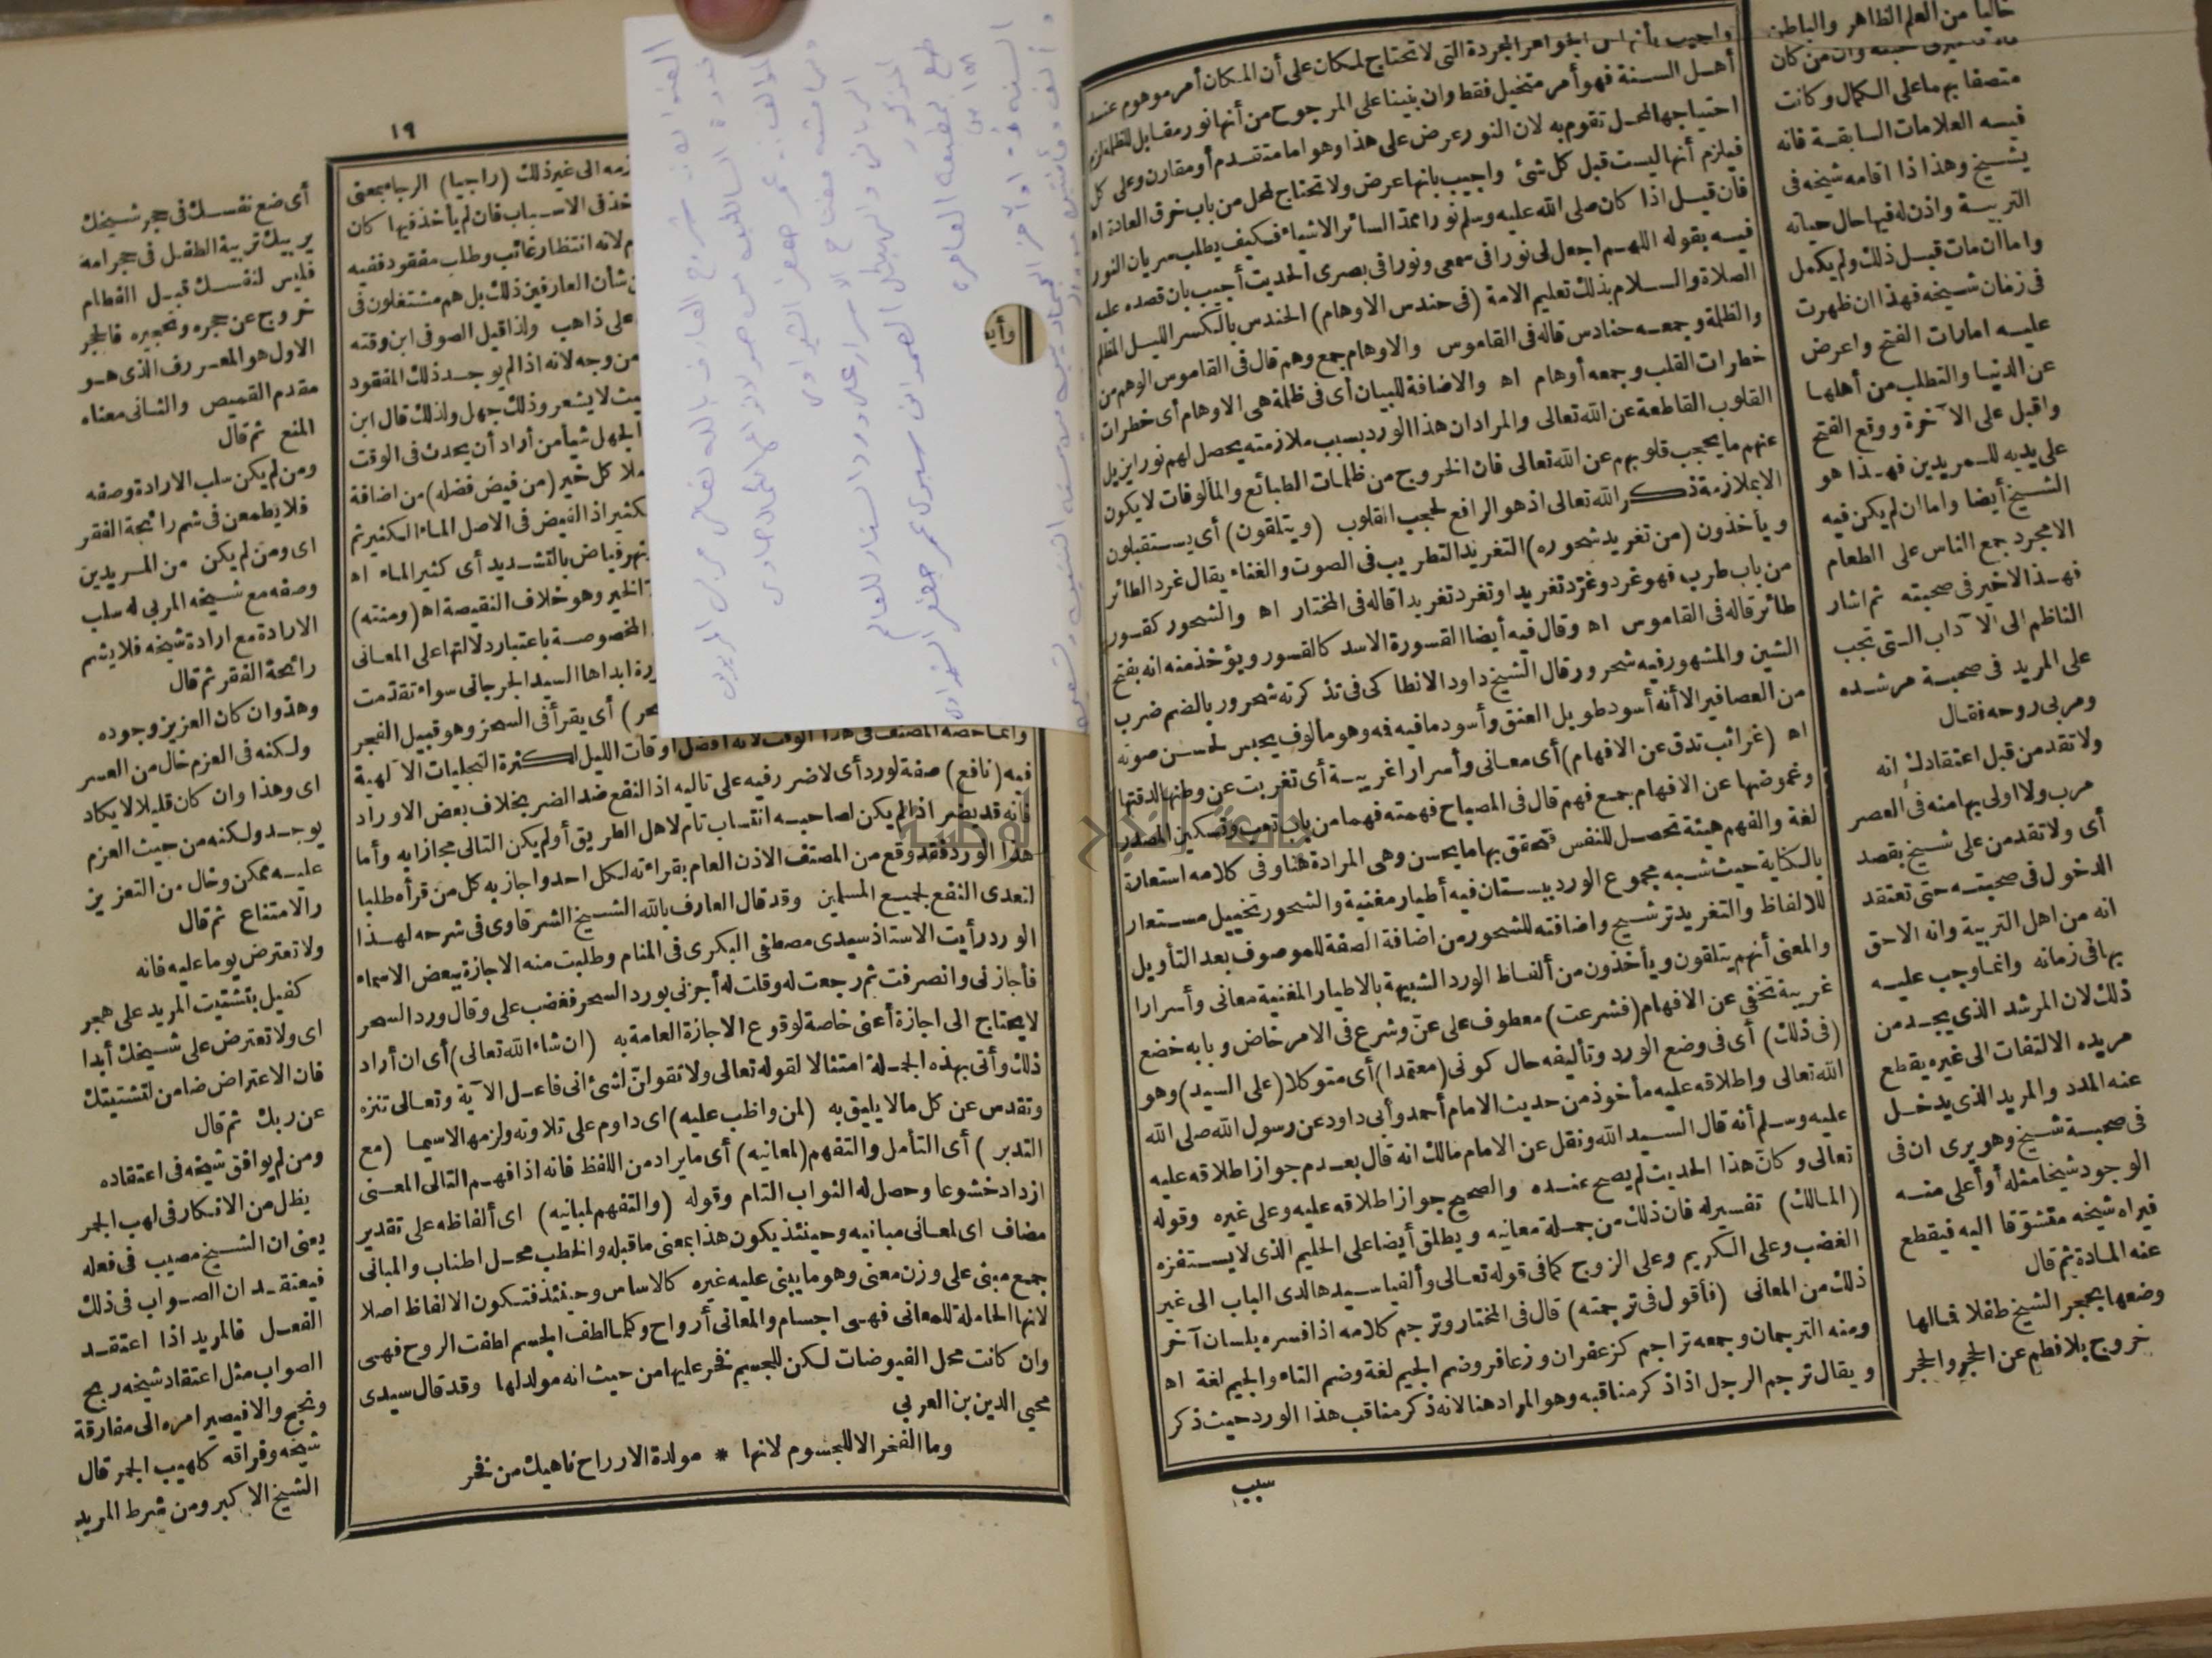 واجيب بأنها من الجواهر المجردة التى لا تحتاج لمكان على أن المكان أمر موهوم عند
أهل السنة فهو أمر متخيل فقط وان بنينا على المرجوح من أنها نور مقابل للظلمة لزم
احتياجها لمحل تقوم به لان النور عرض على هذا وهو اما متقدم أو مقارن وعلى كل
فيلزم أنها ليست قبل كل شئ واجيب بانها عرض ولا تحتاج لمحل من باب خرق العادة اه
فان قيل اذا كان صلى الله عليه وسلم نورا ممدا لسائر الاشياء فكيف يطلب سريان النور
فيه بقوله اللهم اجعل لى نورا فى سمعى ونورا فى بصرى الحديث أجيب بان قصده عليه
الصلاة والسلام بذلك تعليم الامة (فى حندس الاوهام) الحندس بالكسر الليل المظلم
والظلمة وجمعه حنادس قاله فى القاموس والاوهام جمع وهم قال فى القاموس الوهم من
خطرات القلب وجمعه أوهام اه والاضافة للبيان أى فى ظلمة هى الاوهام أى خطرات
القلوب القاطعة عن الله تعالى والمراد ان هذا الورد بسبب ملازمته يحصل لهم نور ايزيل
عنهم ما يحجب قلوبهم عن الله تعالى فان الخروج من ظلمات الطبائع والمألوفات لا يكون
الا بملازمة ذكر الله تعالى اذ هو الرافع لحجب القلوب (ويتلقون) أى يستقبلون
ويأخذون (من تغريد شحوره) التغريد التطريب فى الصوت والغناء يقال غرد الطائر
من باب طرب فهو غرد وغرّد تغريدا وتغرد تغريدا قاله فى المختار اه والشحور كقسور
طائر قاله فى القاموس اه وقال فيه أيضا القسورة الاسد كالقسور ويؤخذ منه انه بفتح
الشين والمشهور فيه شحرور قال الشيخ داود الانطاكى فى تذكرته شحرور بالضم ضرب
من العصافير الا أنه أسود طويل العنق وأسود ما فيه فه وهو مألوف يحبس لحسن صوته
اه (غرائب تدق عن الافهام) أى معانى وأسرارا غريبة أى تغربت عن وطنها لدقتها
وغموضها عن الافهام جمع فهم قال فى المصباح فهمته فهما من باب تعب وتسكين المصدر
لغة والفهم هيئة تحصل للنفس تتحقق بها ما يحسن وهى المرادة هنا وفى كلامه استعارة
بالكناية حيث شبه مجموع الورد ببستان فيه أطيار مغنية والشحور تخييل مستعار
للالفاظ والتغريد ترشيح واضافته للشحور من اضافة الصفة للموصوف بعد التأويل
والمعنى أنهم يتلقون ويأخذون من ألفاظ الورد الشبيهة بالاطيار المغنية معانى وأسرارا
غريبة تخفى عن الافهام (فشرعت) معطوف على عنّ وشرع فى الامر خاض وبابه خضع
(فى ذلك) أى فى وضع الورد وتأليفه حال كونى (معتمدا) أى متوكلا (على السيد) وهو
الله تعالى واطلاقه عليه مأخوذ من حديث الامام أحمد وأبى داود عن رسول الله صلى الله
عليه وسلم أنه قال السيد الله ونقل عن الامام مالك انه قال بعدم جواز اطلاقه عليه
تعالى وكانّ هذا الحديث لم يصح عنده والصحيح جواز اطلاقه عليه وعلى غيره وقوله
(المالك) تفسير له فان ذلك من جملة معانيه ويطلق أيضا على الحليم الذى لا يستفزه
الغضب وعلى الكريم وعلى الزوج كما فى قوله تعالى وألفيا سيدها لدى الباب الى غير
ذلك من المعانى (فأقول فى ترجمته) قال فى المختار وترجم كلامه اذا فسره بلسان آخر
ومنه الترجمان وجمعه تراجم كزعفران وزعافر وضم الجيم لغة وضم التاء والجيم لغة اه
ويقال ترجم الرجل اذا ذكر مناقبه وهو المراد هنا لانه ذكر مناقب هذا الورد حيث ذكر
سبب
خاليا من العلم الظاهر والباطن
وان من كان
متصفا بهما على الكمال وكانت
فيه العلامات السابقة فانه
يشيخ وهذا اذا اقامه شيخه فى
التربية واذن له فيها حال حياته
واما ان مات قبل ذلك ولم يكمل
فى زمان شيخه فهذا ان ظهرت
عليه امارات الفتح واعرض
عن الدنيا والتطلب من أهلها
واقبل على الآخرة ووقع الفتح
على يديه للمريدين فهذا هو
الشيخ أيضا واما ان لم يكن فيه
الامجرد جمع الناس على الطعام
فهذا لا خير فى صحبته ثم اشار
الناظم الى الآداب التى تجب
على المريد فى صحبة مرشده
ومربى روحه فقال
ولا تقدمن قبل اعتقادك انه
مرب ولا اولى بها منه فى العصر
أى ولا تقدمن على شيخ بقصد
الدخول فى صحبته حتى تعتقد
انه من اهل التربية وانه الاحق
بها فى زمانه وانما وجب عليه
ذلك لان المرشد الذى يجد من
مريده الالتفات الى غيره يقطع
عنه المدد والمريد الذى يدخل
فى صحبة شيخ وهو يرى ان فى
الوجود شيخا مثله أو أعلى منه
فيراه شيخه متشوقا اليه فيقطع
عنه المادة ثم قال
وضعها بحجر الشيخ طفلا فمالها
خروج بلا فطم عن الحجر والحجر
١٩
زمه الى غير ذلك (راجيا) الرجاء بمعنى
خذ فى الاسباب فان لم يأخذ فيها كان
م لانه انتظار غائب وطلب مفقود ففيه
ن شأن العارفين ذلك بل هم مشتغلون فى
على ذاهب ولذا قيل الصوفى ابن وقته
من وجه لانه اذا لم يوجد ذلك المفقود
يث لا يشعر وذلك جهل ولذلك قال ابن
الجهل شيأ من أراد أن يحدث فى الوقت
ملا كل خير (من فيض فضله) من اضافة
كثير اذ الفيض فى الاصل الماء الكثير ثم
نهر فياض بالتشديد أى كثير الماء اه
الخير وهو خلاف النقيصة اه (ومنته)
المخصوصة باعتبار دلالتها على المعانى
رة ابداها السيد الجرجانى سواء تقدمت
حر) أى يقرأ فى السحر وهو قبيل الفجر
وانما خصه المصنف فى هذا الوقت لانه افضل أوقات الليل لكثرة التجليات الآلهية
فيه (نافع) صفة لورد أى لا ضرر فيه على تاليه اذ النفع ضد الضر بخلاف بعض الاوراد
فانه قد يضر اذا لم يكن لصاحبه انتساب تام لاهل الطريق أو لم يكن التالى مجازا به وأما
هذا الورد فقد وقع من المصنف الاذن العام بقراءته لكل احد واجاز به كل من قرأه طلبا
لتعدى النفع لجميع المسلمين وقد قال العارف بالله الشيخ الشرقاوى فى شرحه لهذا
الورد رأيت الاستاذ سيدى مصطفى البكرى فى المنام وطلبت منه الاجازة ببعض الاسماء
فأجازنى وانصرفت ثم رجعت له وقلت له أجزنى بورد السحر فغضب على وقال ورد السحر
لا يحتاج الى اجازة أعنى خاصة لوقوع الاجازة العامة به (ان شاء الله تعالى) أى ان أراد
ذلك وأتى بهذه الجملة امتثالا لقوله تعالى ولا تقولنّ لشئ انى فاعل الآية وتعالى تنزه
وتقدس عن كل ما لا يليق به (لمن واظب عليه) اى داوم على تلاوته ولزمها لاسيما (مع
التدبر) أى التأمل والتفهم (لمعانيه) أى ما يراد من اللفظ فانه اذا فهم التالى المعنى
ازداد خشوعا وحصل له الثواب التام وقوله (والتفهم لمبانيه) اى ألفاظه على تقدير
مضاف اى لمعانى مبانيه وحينئذ يكون هذا بمعنى ما قبله والخطب محل اطناب والمبانى
جمع مبنى على وزن معنى وهو ما يبنى عليه غيره كالاساس وحينئذ فتكون الالفاظ اصلا
لانها الحاملة للمعانى فهى اجسام والمعانى أرواح وكلما لطف الجسم لطفت الروح فهى
وان كانت محل الفيوضات لكن للجسم فخر عليها من حيث انه مولد لها وقد قال سيدى
محيى الدين بن العربى
وما الفخر الا للجسوم لانها * مولدة الارواح ناهيك من فخر
أى ضع نفسك فى حجر شيخك
يربيك تربية الطفل فى حجر امه
فليس لنفسك قبل الفطام
خروج عن حجره وتحجيره فالحجر
الاول هو المعروف الذى هو
مقدم القميص والثانى معناه
المنع ثم قال
ومن لم يكن سلب الارادة وصفه
فلا يطمعن فى شم رائحة الفقر
اى ومن لم يكن من المريدين
وصفه مع شيخه المربى له سلب
الارادة مع ارادة شيخه فلا يشم
رائحة الفقر ثم قال
وهذا وان كان العزيز وجوده
ولكنه فى العزم خال من العسر
اى وهذا وان كان قليلا لا يكاد
يوجد ولكنه من حيث العزم
عليه ممكن وخال من التعزيز
والامتناع ثم قال
ولا تعترض يوما عليه فانه
كفيل بتشتيت المريد على هجر
اى ولا تعترض على شيخك أبدا
فان الاعتراض ضامن لتشتيتك
عن ربك ثم قال
ومن لم يوافق شيخه فى اعتقاده
يظل من الانكار فى لهب الجمر
يعنى ان الشيخ مصيب فى فعله
فيعتقد ان الصواب فى ذلك
الفعل فالمريد اذا اعتقد
الصواب مثل اعتقاد شيخه ربح
ونجح والا فيصير امره الى مفارقة
شيخه وفراقه كلهيب الجمر قال
الشيخ الاكبر ومن شرط المريد